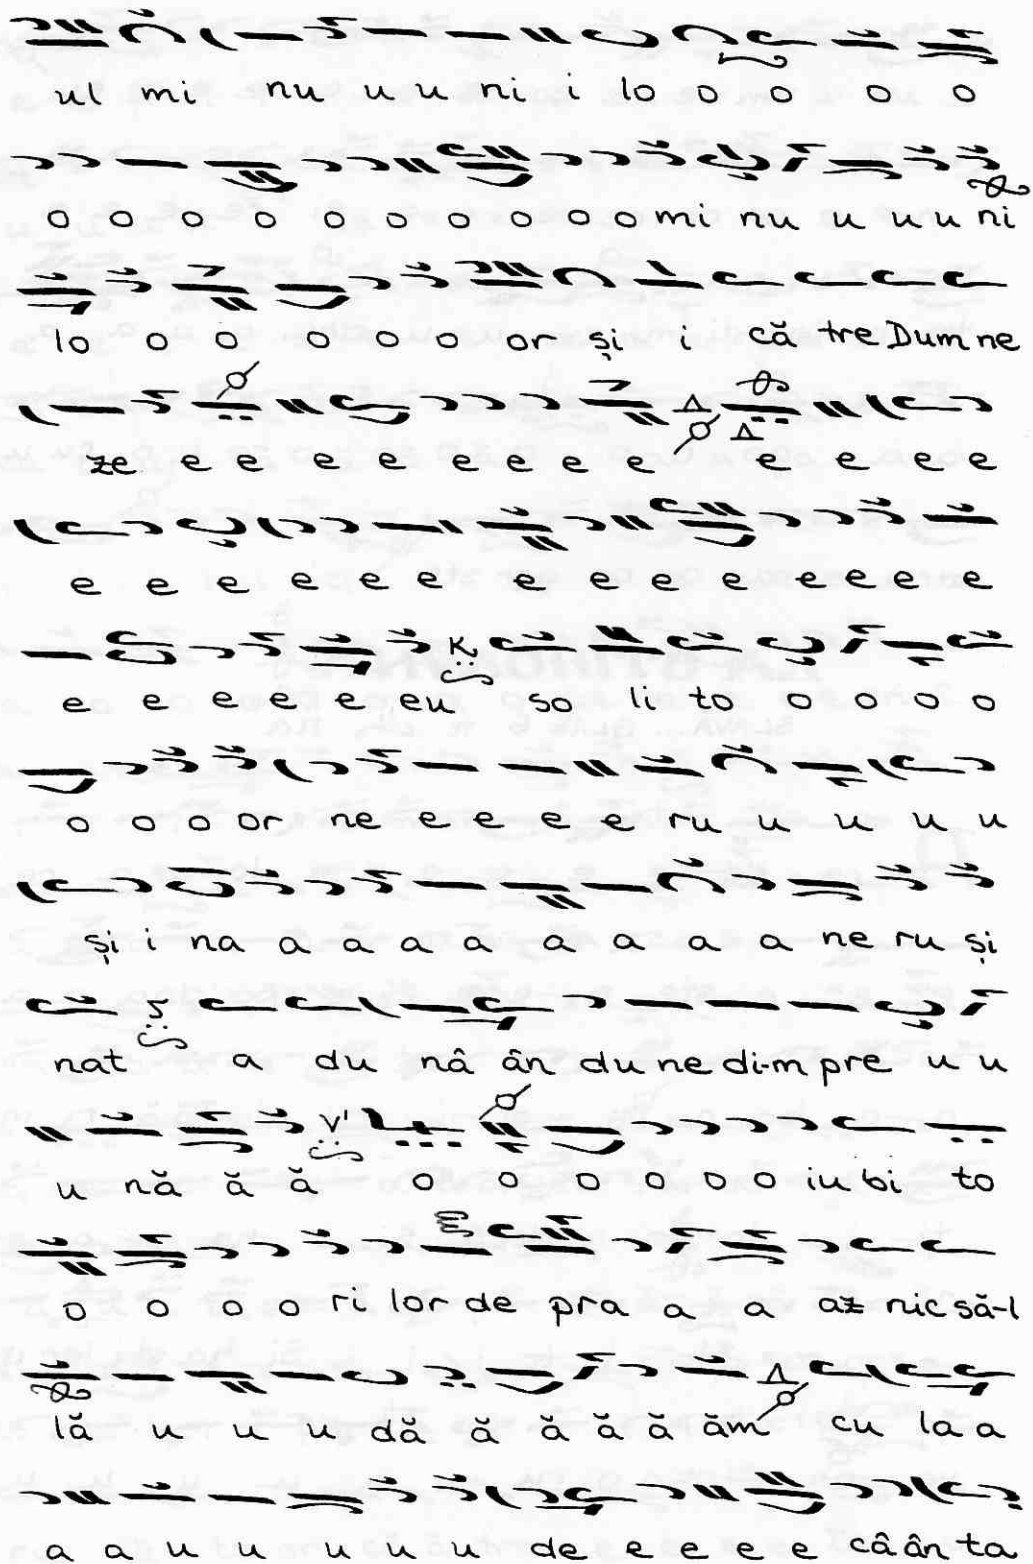 ul mi nu u u ni i lo o o o o o
o o o o o o o o o o o mi nu u u u ni
lo o o o o o or și i că tre Dum ne
ze e e e e e e e e e e e e
e e e e e e e e e e e e e e
e e e e e eu so li to o o o o
o o o or ne e e e e ru u u u u
și i na a a a a a a a a ne ru și
nat a du nâ ân du ne di-m pre u u
u nă ă ă o o o o o o iu bi to
o o o o ri lor de pra a a az nic să-l
lă u u u dă ă ă ă ă ăm cu la a
a a u u u u u de e e e e câ ân ta